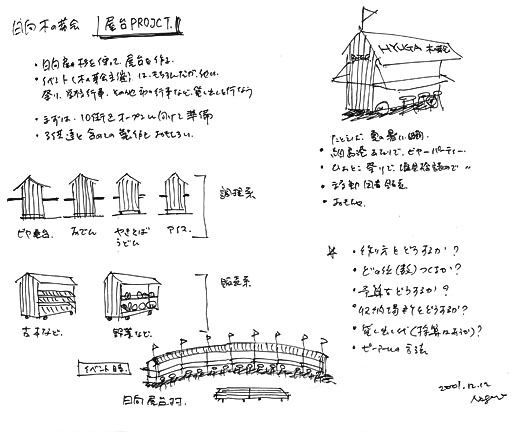 日向木の芽会 屋台PROJCT.
・日向産の杉を使って、屋台を作る。
・イベント(木の芽会主催)は、もちろん
祭り、学校行事、その他 の行事など、貸し出しも行なう
・まずは、10街区オープンに向けて準備
・子供達と含めての製作もおもしろい。
HYUGA 木の芽会
たとえば、夏の暑い時期
・細島港 ビヤーパーティー
・ひょっとこ祭りで、塩見
・移動図書館
・おもちゃ
調理系
ビヤ樽台.
おでん
やきそば
うどん
アイス.
販売系
古本など.
野菜など.
イベント時
日向屋台村
・作り方をどうするか?
・どの位(数)つくるか?
・予算をどうするか?
・収納場所をどうするか?
・貸し出しが(採算はあうか)?
・ピーアールの方法
2001.12.12